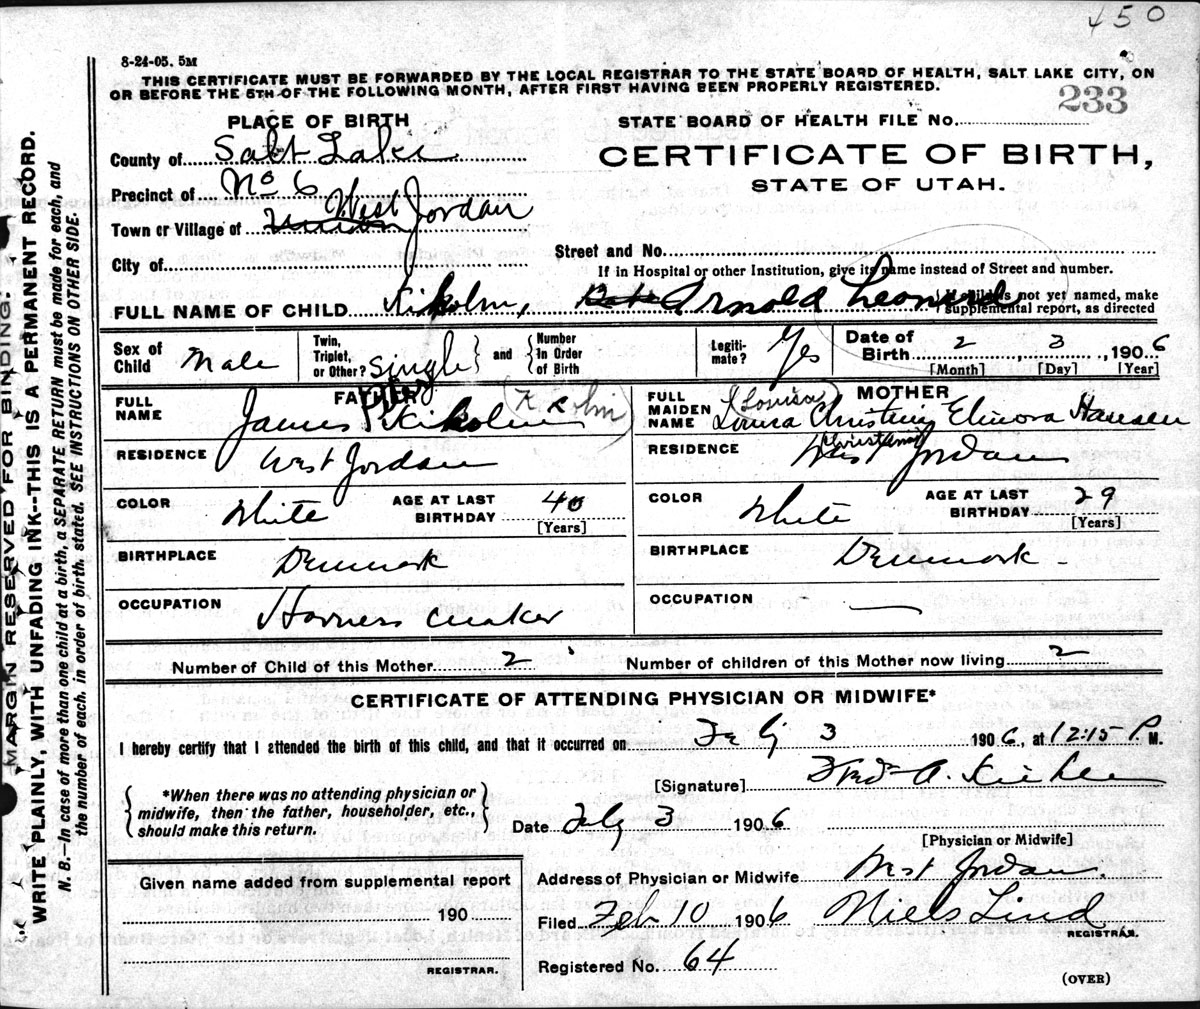 450
8-24-05. 5M
THIS CERTIFICATE MUST BE FORWARDED BY THE LOCAL REGISTRAR TO THE STATE BOARD OF HEALTH, SALT LAKE CITY, ON
OR BEFORE THE 5TH OF THE FOLLOWING MONTH, AFTER FIRST HAVING BEEN PROPERLY REGISTERED.
233
PLACE OF BIRTH
STATE BOARD OF HEALTH FILE No.
County of Salt Lake
CERTIFICATE OF BIRTH,
STATE OF UTAH.
Precinct of No 6
Town or Village of Union West Jordan
City of
Street and No.
If in Hospital or other Institution, give its name instead of Street and number.
FULL NAME OF CHILD Kikolm, Arnold Leonard
If child is not yet named, make
supplemental report, as directed
Sex of Child Male
Twin, Triplet, or Other? Single and Number in Order of Birth
Legitimate? Yes
Date of Birth 2, 3, 1906
[Month] [Day] [Year]
FATHER
MOTHER
FULL NAME James Kikolm
FULL MAIDEN NAME Louisa Christina Elinora Hansen
(Louisa)
RESIDENCE West Jordan
RESIDENCE West Jordan
COLOR White
AGE AT LAST BIRTHDAY 40
[Years]
COLOR White
AGE AT LAST BIRTHDAY 29
[Years]
BIRTHPLACE Denmark
BIRTHPLACE Denmark
OCCUPATION Harness maker
OCCUPATION —
Number of Child of this Mother 2
Number of children of this Mother now living 2
CERTIFICATE OF ATTENDING PHYSICIAN OR MIDWIFE*
I hereby certify that I attended the birth of this child, and that it occurred on Feby 3 1906, at 12:15 P.M.
[Signature] A.
*When there was no attending physician or
midwife, then the father, householder, etc.,
should make this return.
Date Feby 3 1906
[Physician or Midwife]
Given name added from supplemental report
190
REGISTRAR.
Address of Physician or Midwife West Jordan
Filed Feb 10 1906 Niels Lind
REGISTRAR.
Registered No. 64
(OVER)
MARGIN RESERVED FOR BINDING.
WRITE PLAINLY, WITH UNFADING INK--THIS IS A PERMANENT RECORD.
N. B.—In case of more than one child at a birth, a SEPARATE RETURN must be made for each, and
the number of each, in order of birth, stated. SEE INSTRUCTIONS ON OTHER SIDE.